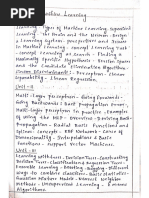 Machine Learning
Unit - I
Learning - Types of Machine Learning - Supervised
Learning - The Brain and the Neuron - Design
a Learning System - perspectives and Issues
in Machine Learning - Concept Learning Task
Concept Learning as Search - Finding a
Maximally Specific Hypothesis - Version Spaces
and the Candidate Elimination Algorithm -
Linear Discriminants - Perceptron - Linear
Separability - Linear Regression.
Unit - II
Multi-layer perceptron - Going Forwards -
Going Backwards : Back Propagation Error
Multi-layer perceptron in practice - Examples
of using the MLP - Overview - Deriving Back-
Propagation - Radial Basis Functions and
Splines - Concepts - RBF Network - Curse of
Dimensionality - Interpolations & Basis
Functions - Support Vector Machines.
Unit - III
Learning with Trees - Decision Trees - Constructing
Decision Trees - Classification & Regression Trees -
Ensemble Learning - Boosting - Bagging - Different
ways to combine classifiers - Basic Statistics -
Gaussian Mixture Models - Nearest Neighbor
Methods - Unsupervised Learning - K-means
Algorithms